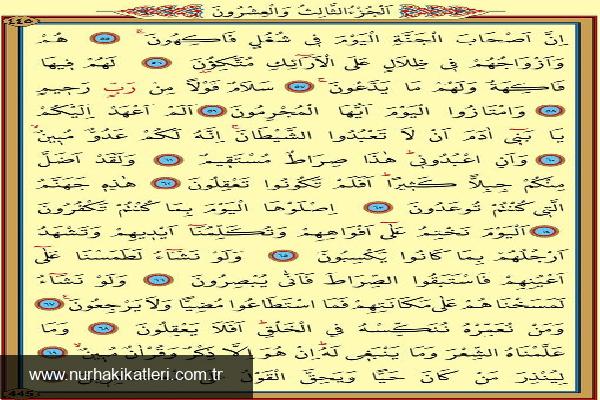 اَلْجُزْءُ الثَّالِثُ وَالْعِشْرُونَ
٤٤٥
اِنَّ اَصْحَابَ الْجَنَّةِ الْيَوْمَ فٖى شُغُلٍ فَاكِهُونَ ﴿٥٥﴾ هُمْ
وَاَزْوَاجُهُمْ فٖى ظِلَالٍ عَلَى الْاَرَائِكِ مُتَّكِؤُنَ ﴿٥٦﴾ لَهُمْ فٖيهَا
فَاكِهَةٌ وَلَهُمْ مَا يَدَّعُونَ ﴿٥٧﴾ سَلَامٌ قَوْلًا مِنْ رَبٍّ رَحٖيمٍ
﴿٥٨﴾ وَامْتَازُوا الْيَوْمَ اَيُّهَا الْمُجْرِمُونَ ﴿٥٩﴾ اَلَمْ اَعْهَدْ اِلَيْكُمْ
يَا بَنٖى اٰدَمَ اَنْ لَا تَعْبُدُوا الشَّيْطَانَ اِنَّهُ لَكُمْ عَدُوٌّ مُبٖينٌ
﴿٦٠﴾ وَاَنِ اعْبُدُونٖى هٰذَا صِرَاطٌ مُسْتَقٖيمٌ ﴿٦١﴾ وَلَقَدْ اَضَلَّ
مِنْكُمْ جِبِلًّا كَثٖيرًا اَفَلَمْ تَكُونُوا تَعْقِلُونَ ﴿٦٢﴾ هٰذِهٖ جَهَنَّمُ
الَّتٖى كُنْتُمْ تُوعَدُونَ ﴿٦٣﴾ اِصْلَوْهَا الْيَوْمَ بِمَا كُنْتُمْ تَكْفُرُونَ
﴿٦٤﴾ اَلْيَوْمَ نَخْتِمُ عَلٰى اَفْوَاهِهِمْ وَتُكَلِّمُنَا اَيْدٖيهِمْ وَتَشْهَدُ
اَرْجُلُهُمْ بِمَا كَانُوا يَكْسِبُونَ ﴿٦٥﴾ وَلَوْ نَشَاءُ لَطَمَسْنَا عَلٰى
اَعْيُنِهِمْ فَاسْتَبَقُوا الصِّرَاطَ فَاَنّٰى يُبْصِرُونَ ﴿٦٦﴾ وَلَوْ نَشَاءُ
لَمَسَخْنَاهُمْ عَلٰى مَكَانَتِهِمْ فَمَا اسْتَطَاعُوا مُضِيًّا وَلَا يَرْجِعُونَ ﴿٦٧﴾
وَمَنْ نُعَمِّرْهُ نُنَكِّسْهُ فِى الْخَلْقِ اَفَلَا يَعْقِلُونَ ﴿٦٨﴾ وَمَا
عَلَّمْنَاهُ الشِّعْرَ وَمَا يَنْبَغٖى لَهُ اِنْ هُوَ اِلَّا ذِكْرٌ وَقُرْاٰنٌ مُبٖينٌ ﴿٦٩﴾
لِيُنْذِرَ مَنْ كَانَ حَيًّا وَيَحِقَّ الْقَوْلُ
www.nurhakikatleri.com.tr
445